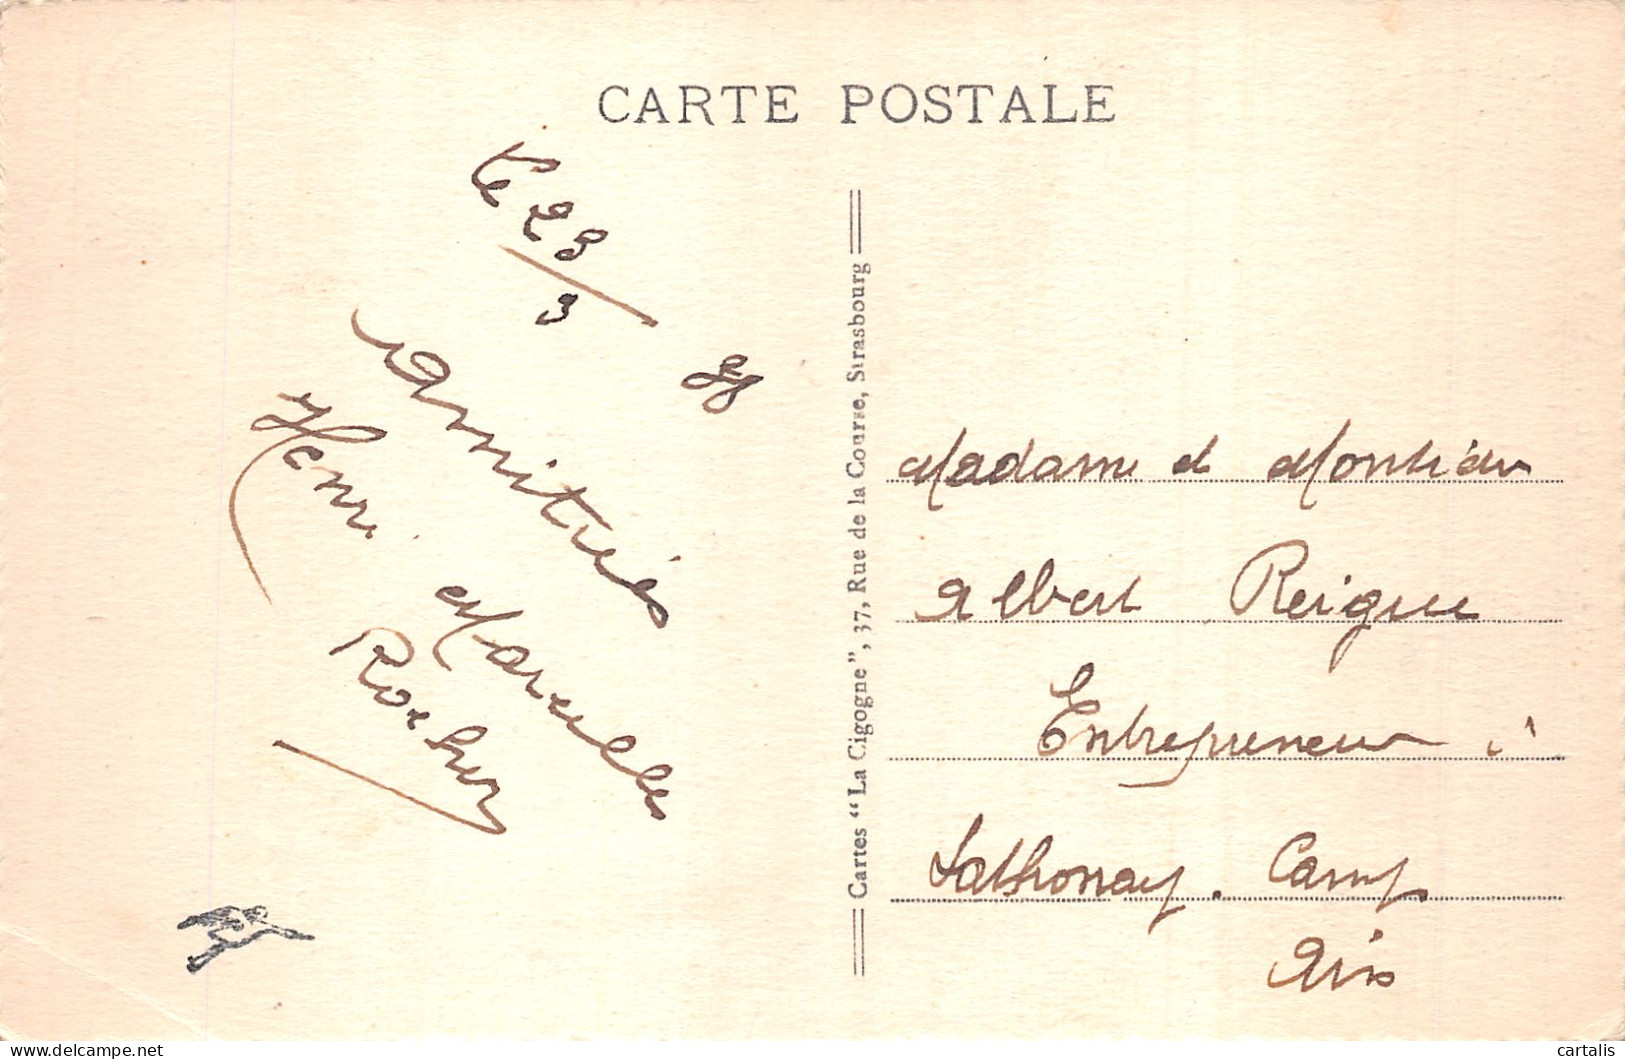 CARTE POSTALE
Le 23/3
Amitiés
Henri Marcelle
Cartes "La Cigogne", 37, Rue de la Course, Strasbourg
Madame et
Albert Reigue
Entrepreneur à
Sathonay. Camp
Ain
delcampe.net
cartalis